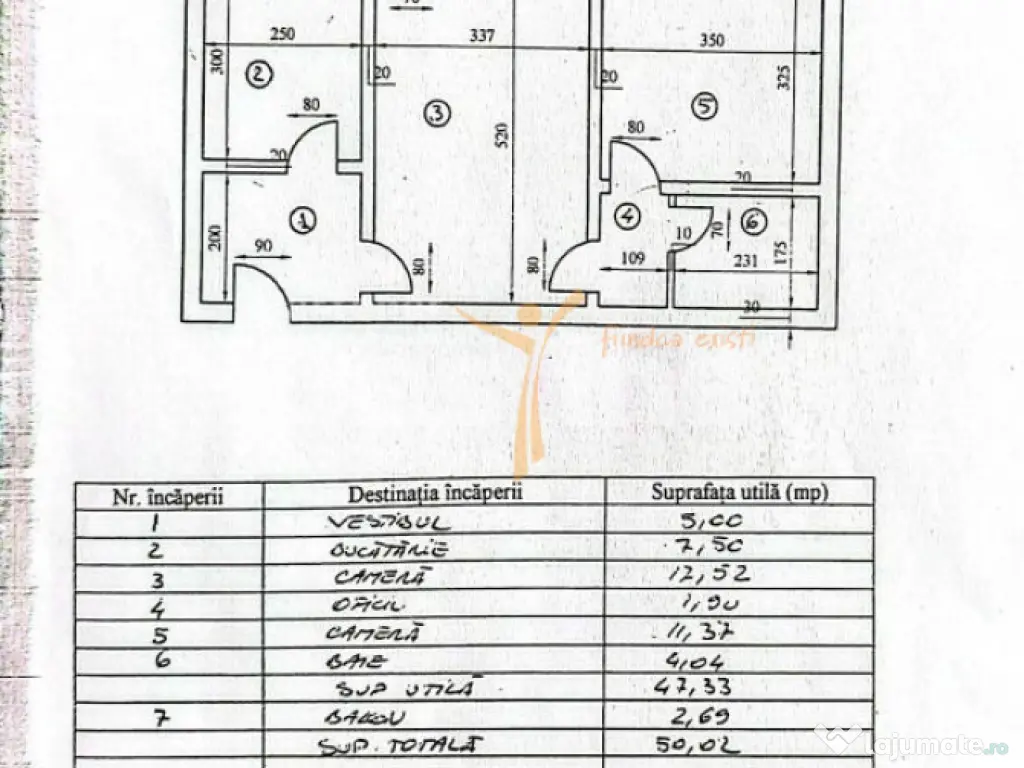 70
250
337
350
300
2
20
3
20
5
325
80
520
80
20
20
1
4
6
200
90
80
80
10
70
109
231
175
30
fiindcă exiști
Nr. încăperii Destinația încăperii Suprafața utilă (mp)
1 VESTIBUL 5,00
2 BUCĂTĂRIE 7,50
3 CAMERĂ 17,52
4 OFICIU 1,90
5 CAMERĂ 11,37
6 BAIE 4,04
SUP UTILĂ 47,33
7 BALCON 2,69
SUP. TOTALĂ 50,02
lajumate.ro